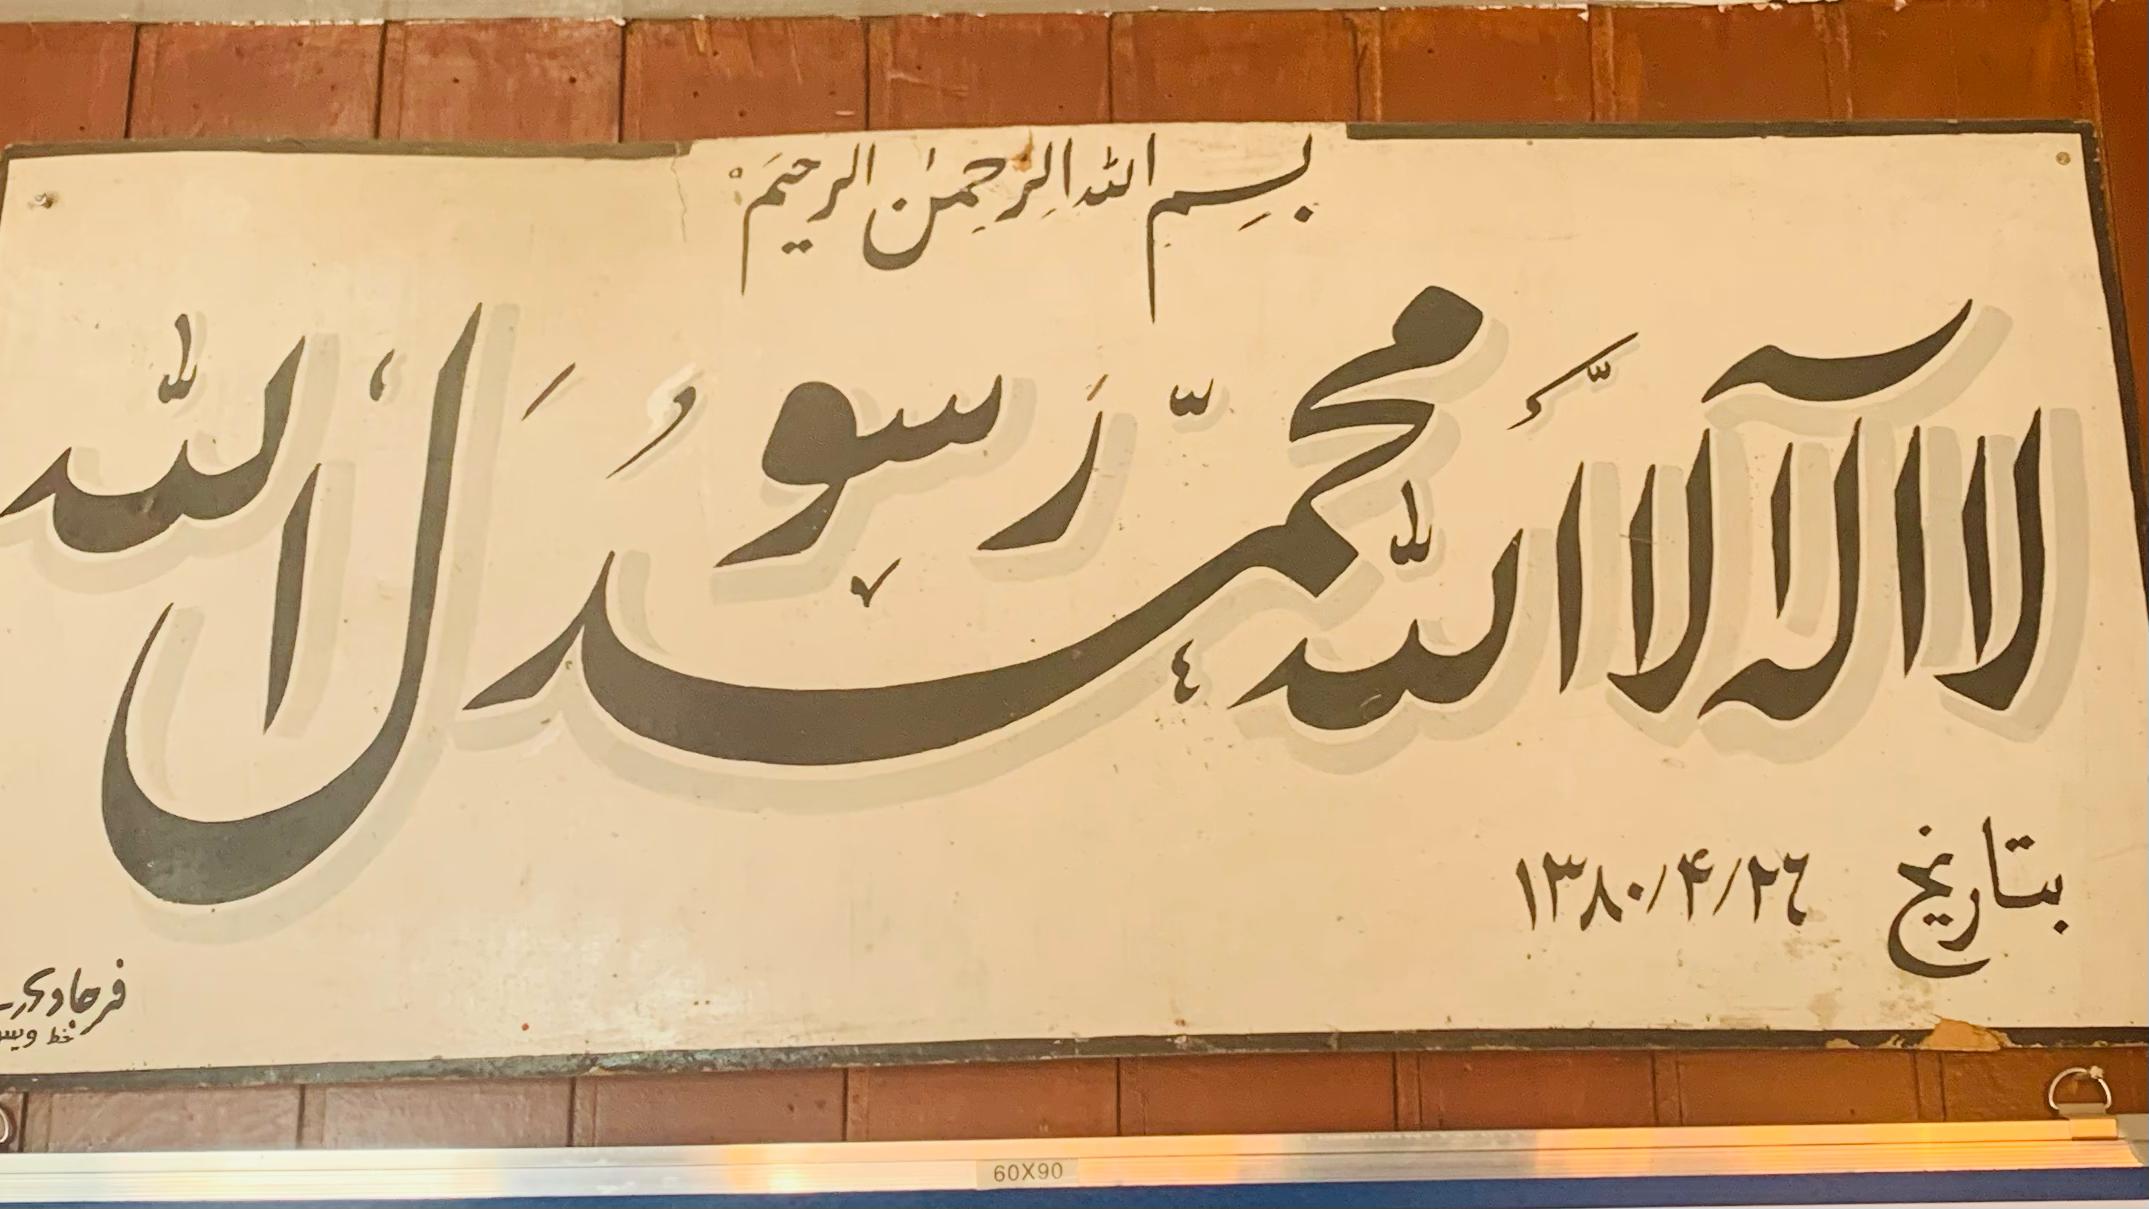 بسم الله الرحمٰن الرحیم
لا اله الا الله محمد رسول الله
بتاریخ ۱۳۸۰/۴/۲۶
خط
60X90